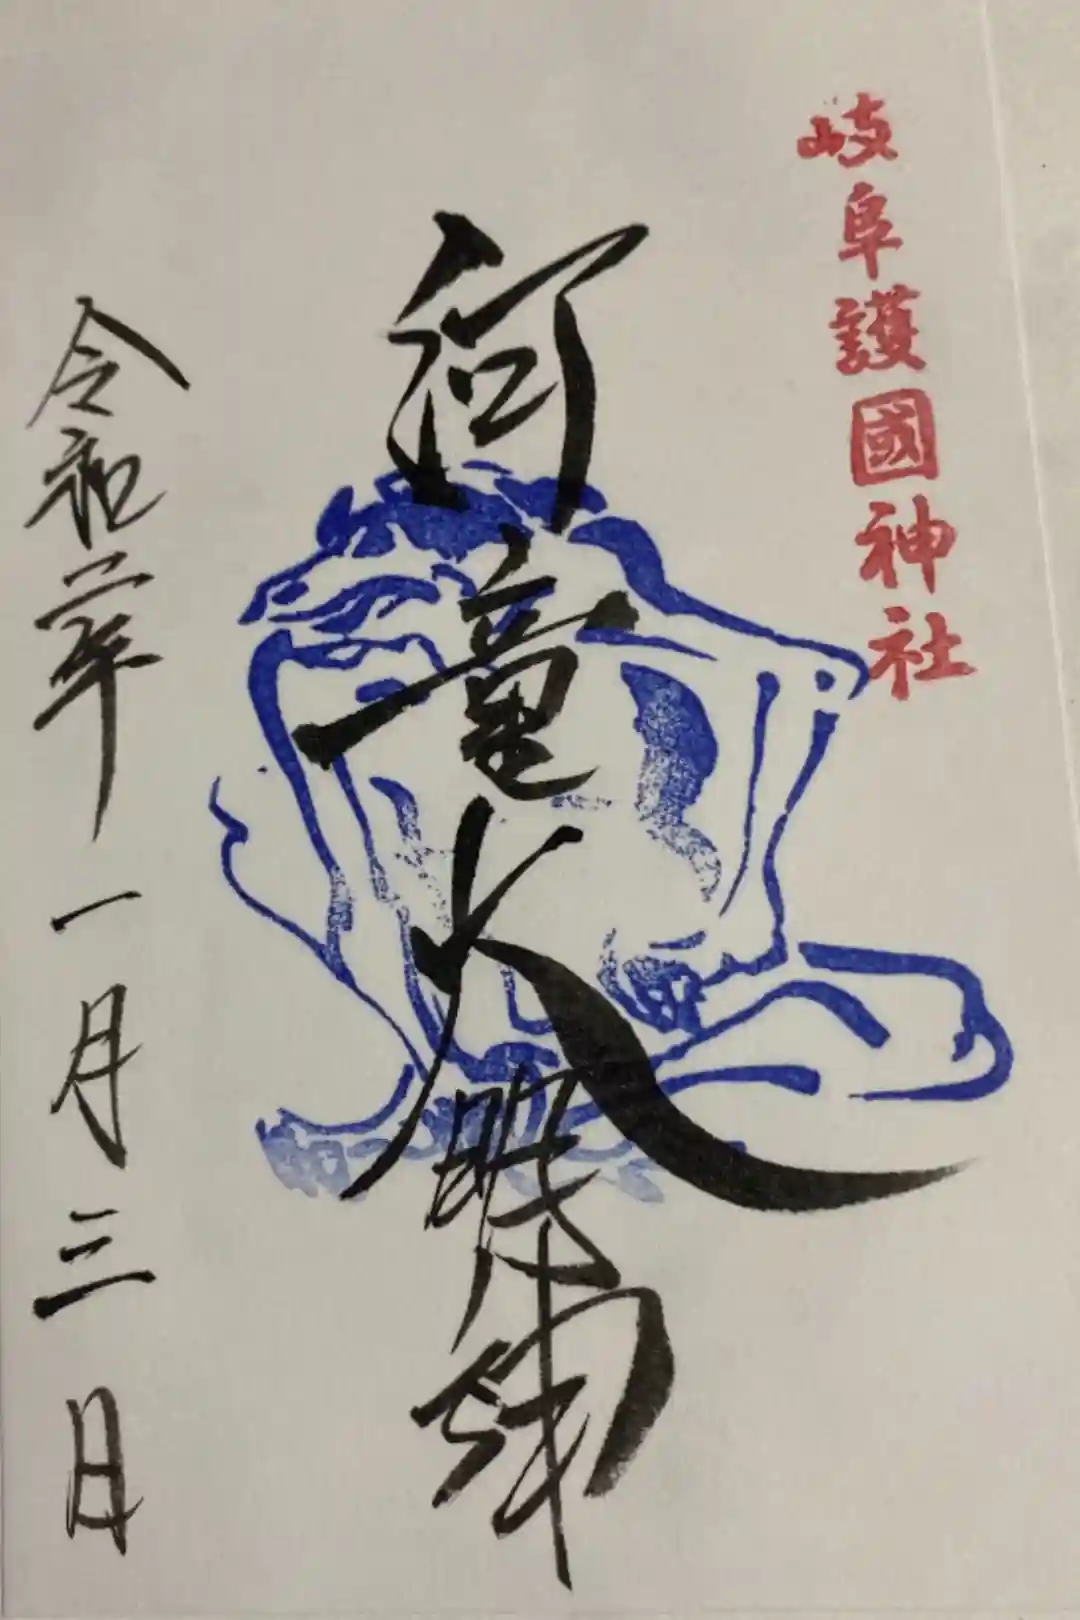 岐阜護國神社
河竜大明神
令和二年一月三日